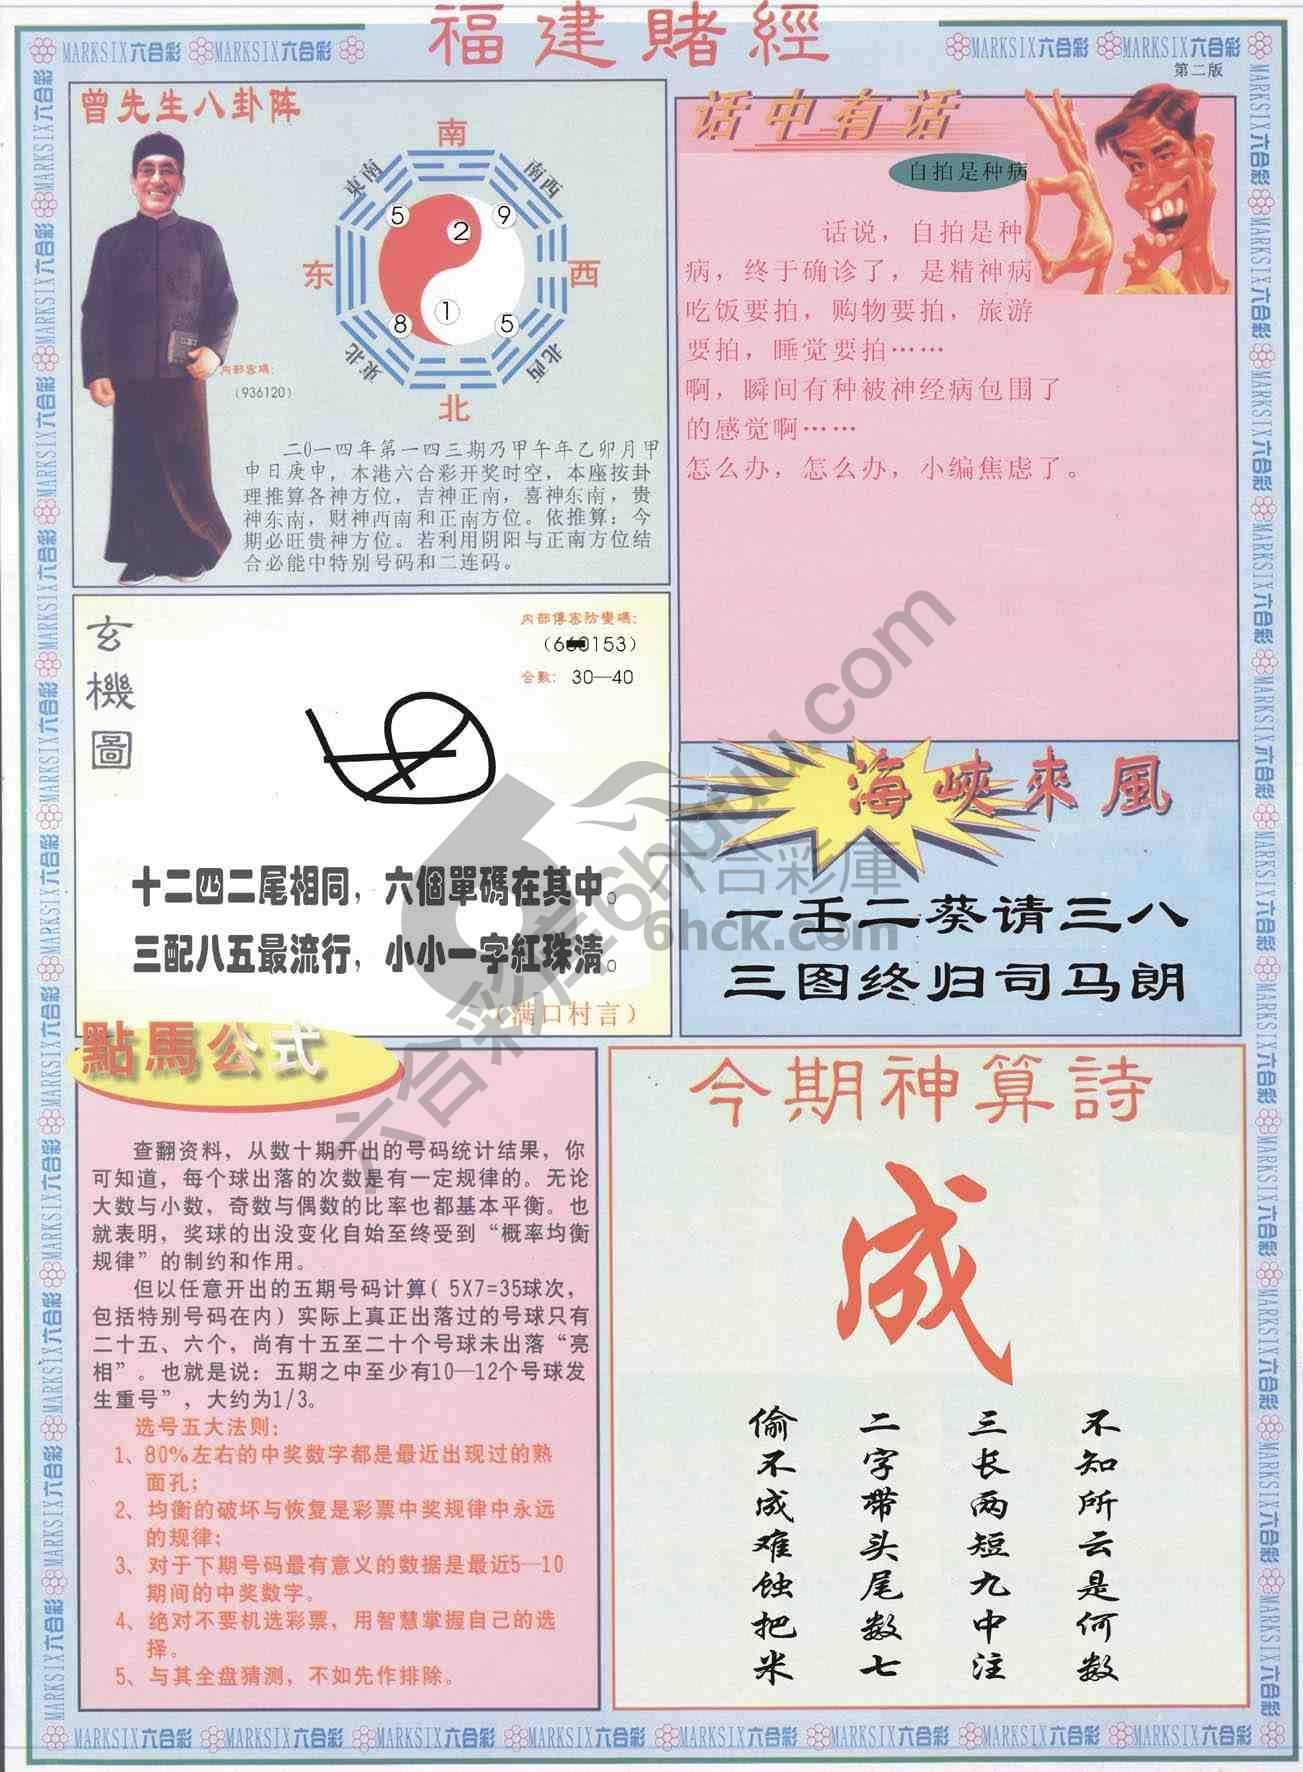 福建賭經
MARKSIX六合彩 MARKSIX六合彩
MARKSIX六合彩 MARKSIX六合彩
第二版
曾先生八卦阵
南
東南
南西
5
9
2
东
西
1
8
5
東北
北西
北
内部密碼：
（936120）
二0一四年第一四三期乃甲午年乙卯月甲
申日庚申，本港六合彩开奖时空，本座按卦
理推算各神方位，吉神正南，喜神东南，贵
神东南，财神西南和正南方位。依推算：今
期必旺贵神方位。若利用阴阳与正南方位结
合必能中特别号码和二连码。
话中有话
自拍是种病
话说，自拍是种
病，终于确诊了，是精神病
吃饭要拍，购物要拍，旅游
要拍，睡觉要拍……
啊，瞬间有种被神经病包围了
的感觉啊……
怎么办，怎么办，小编焦虑了。
玄機圖
内部傳密防變碼：
（660153）
合數： 30—40
十二四二尾相同，六個單碼在其中。
三配八五最流行，小小一字紅珠清。
（满口村言）
海峽來風
一壬二葵请三八
三图终归司马朗
六合彩庫
6hck.com
點馬公式
查翻资料，从数十期开出的号码统计结果，你
可知道，每个球出落的次数是有一定规律的。无论
大数与小数，奇数与偶数的比率也都基本平衡。也
就表明，奖球的出没变化自始至终受到“概率均衡
规律”的制约和作用。
但以任意开出的五期号码计算（5X7=35球次，
包括特别号码在内）实际上真正出落过的号球只有
二十五、六个，尚有十五至二十个号球未出落“亮
相”。也就是说：五期之中至少有10—12个号球发
生重号”，大约为1/3。
选号五大法则：
1、80%左右的中奖数字都是最近出现过的熟
面孔；
2、均衡的破坏与恢复是彩票中奖规律中永远
的规律；
3、对于下期号码最有意义的数据是最近5—10
期间的中奖数字。
4、绝对不要机选彩票，用智慧掌握自己的选
择。
5、与其全盘猜测，不如先作排除。
今期神算詩
成
不知所云是何数
三长两短九中注
二字带头尾数七
偷不成难蚀把米
MARKSIX六合彩 MARKSIX六合彩 MARKSIX六合彩 MARKSIX六合彩 MARKSIX六合彩 MARKSIX六合彩 MARKSIX六合彩 MARKSIX六合彩